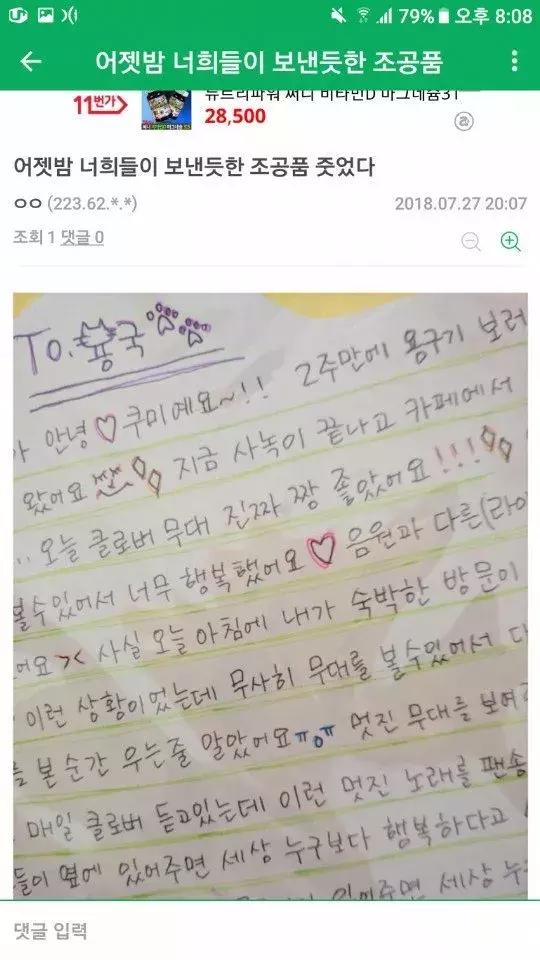 79% 오후 8:08
어젯밤 너희들이 보낸듯한 조공품
11번가
뉴트리파워 써니 비타민D 마그네슘31
28,500
어젯밤 너희들이 보낸듯한 조공품 줏었다
ㅇㅇ (223.62.*.*)
2018.07.27 20:07
조회 1 댓글 0
To. 용국
안녕♡쿠미예요~!! 2주만에 용구기 보러
왔어요 지금 사녹이 끝나고 카페에서
.. 오늘 클로버 무대 진짜 짱 좋았어요!!!
볼수있어서 너무 행복했어요♡ 음원과 다른(라이
어요 >< 사실 오늘 아침에 내가 숙박한 방문이
이런 상황이었는데 무사히 무대를 볼수있어서 다
본순간 우는줄 알았어요ㅠㅇㅠ 멋진 무대를 보여
매일 클로버 듣고있는데 이런 멋진 노래를 팬송
들이 옆에 있어주면 세상 누구보다 행복하다고
있어주면 세상 누
댓글 입력